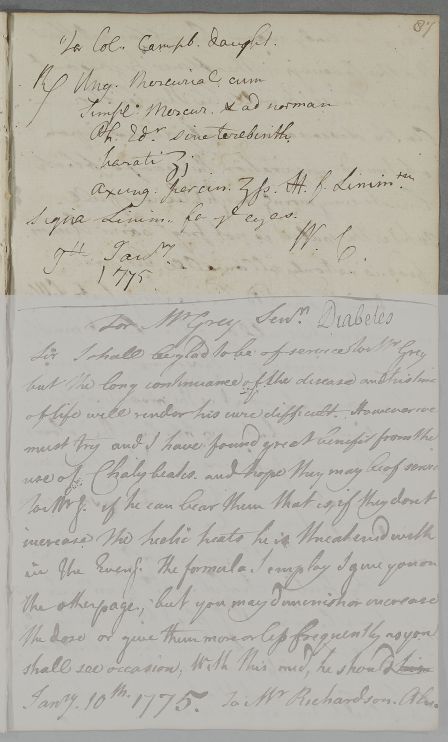 87
To Col. Campb. Daught.
℞ Ung. Mercurial. cum
Simpl: Mercur. & ad norman
Ph. Edr. sine terebinth.
parati ʒj.
axung. porcin. ʒſs. M. f. Linimtm
Signa Linim. for ye eyes.
W. C.
7th Janry
1775.
For Mr Grey Senr Diabetes
Sir I shall be glad to be of service to Mr Grey
but the long continuance of the disease and his time
of life will render his cure difficult. However we
must try and I have found great benefit from the
use of Chalybeates. and hope they may be of service
to Mr G. if he can bear them that is, if they dont
increase the hectic heats he is threatened with
in the Eveng. The formula I employ I give you on
the other page; but you may diminish or increase
the dose or give them more or less frequently as you
shall see occasion, With this med, he should
Janry. 10th. 1775. To Mr Richardson.